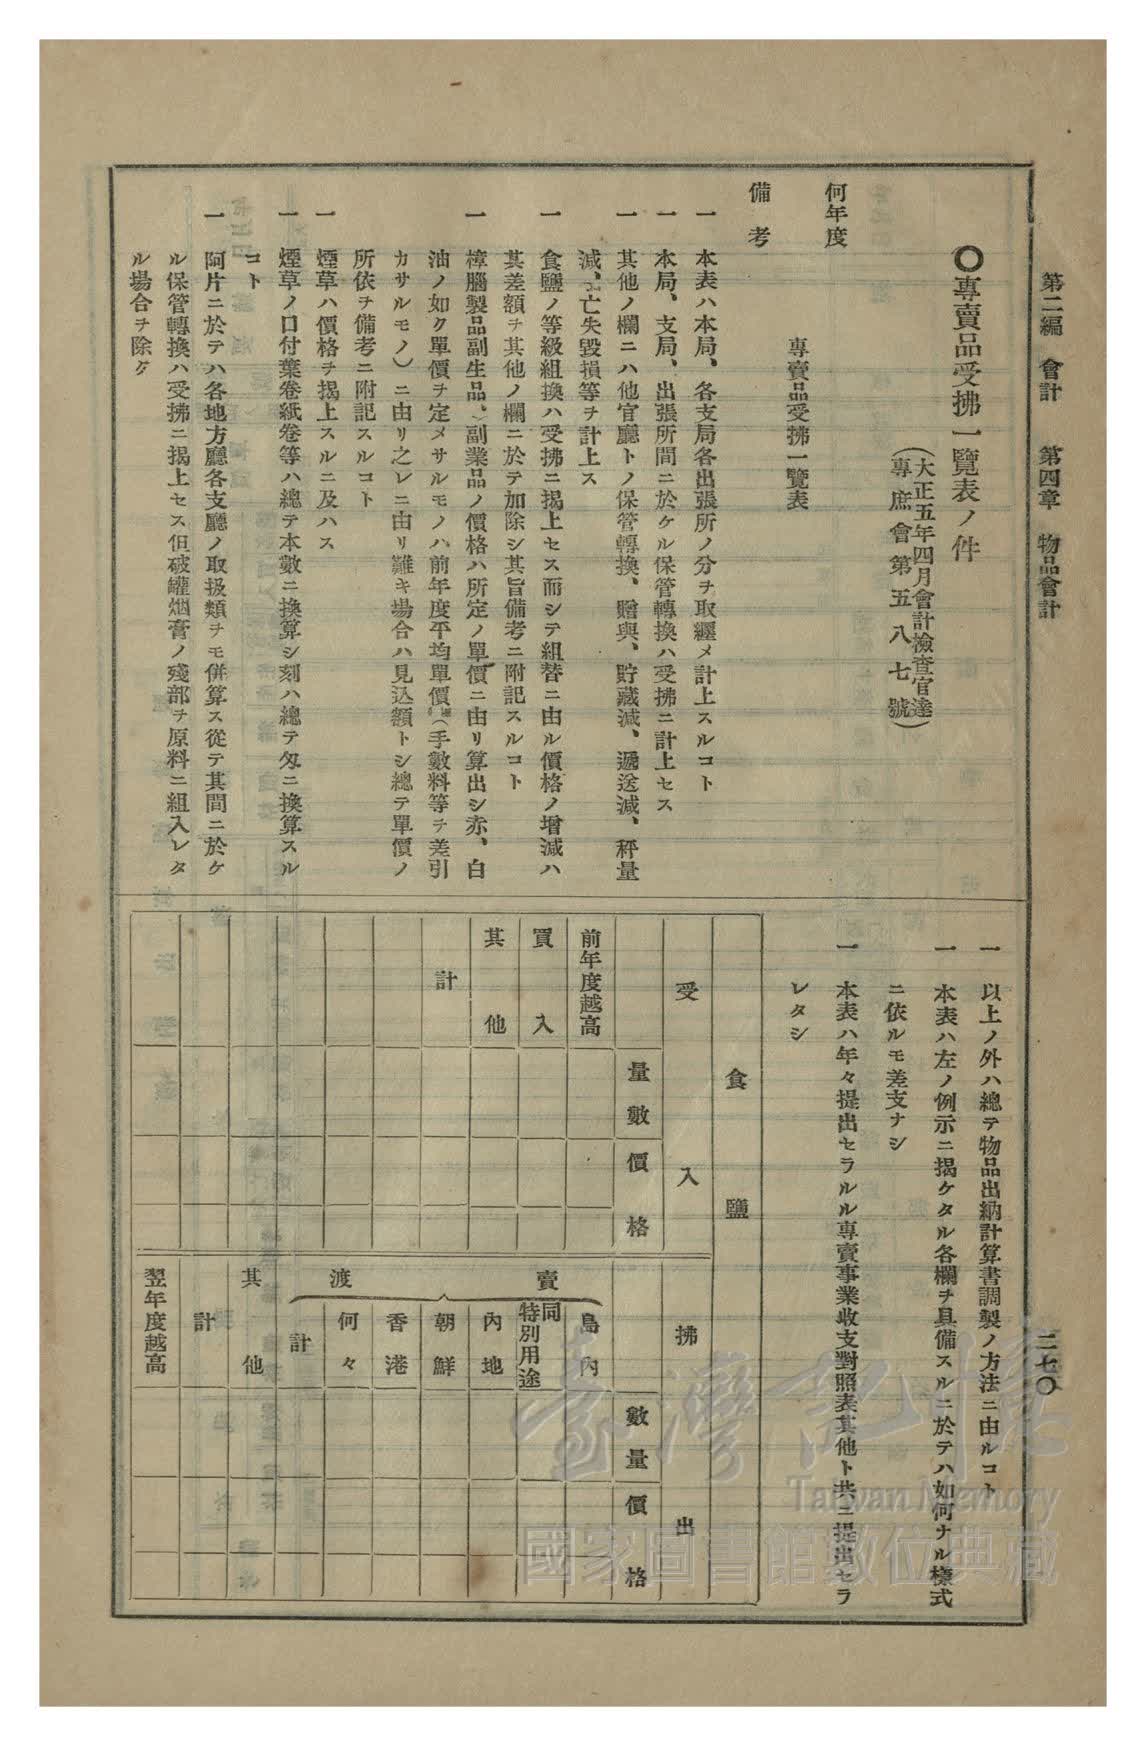 第二編　會計　　第四章　物品會計
二七〇
〇專賣品受拂一覽表ノ件
（大正五年四月會計檢査官達）
（專庶會第五八七號）
何年度
專賣品受拂一覽表
備考
一　本表ハ本局、各支局各出張所ノ分ヲ取纒メ計上スルコト
一　本局、支局、出張所間ニ於ケル保管轉換ハ受拂ニ計上セス
一　其他ノ欄ニハ他官廳トノ保管轉換、贈與、貯藏減、遞送減、秤量
減、亡失毀損等ヲ計上ス
一　食鹽ノ等級組換ハ受拂ニ揭上セス而シテ組替ニ由ル價格ノ增減ハ
其差額ヲ其他ノ欄ニ於テ加除シ其旨備考ニ附記スルコト
一　樟腦製品副生品、副業品ノ價格ハ所定ノ單價ニ由リ算出シ赤、白
油ノ如ク單價ヲ定メサルモノハ前年度平均單價（手數料等ヲ差引
カサルモノ）ニ由リ之レニ由リ難キ場合ハ見込額トシ總テ單價ノ
所依ヲ備考ニ附記スルコト
一　煙草ハ價格ヲ揭上スルニ及ハス
一　煙草ノ口付葉卷紙卷等ハ總テ本數ニ換算シ刻ハ總テ匁ニ換算スル
コト
一　阿片ニ於テハ各地方廳各支廳ノ取扱類ヲモ併算ス從テ其間ニ於ケ
ル保管轉換ハ受拂ニ揭上セス但破罐烟膏ノ殘部ヲ原料ニ組入レタ
ル場合ヲ除ク
一　以上ノ外ハ總テ物品出納計算書調製ノ方法ニ由ルコト
一　本表ハ左ノ例示ニ揭ケタル各欄ヲ具備スルニ於テハ如何ナル樣式
ニ依ルモ差支ナシ
一　本表ハ年々提出セラルル專賣事業收支對照表其他ト共ニ提出セラ
レタシ
食鹽
受入
拂出
量數
價格
數量
價格
前年度越高
買入
其他
計
賣渡
島內
同特別用途
內地
朝鮮
香港
何々
計
其他
計
翌年度越高
臺灣記憶
Taiwan Memory
國家圖書館數位典藏